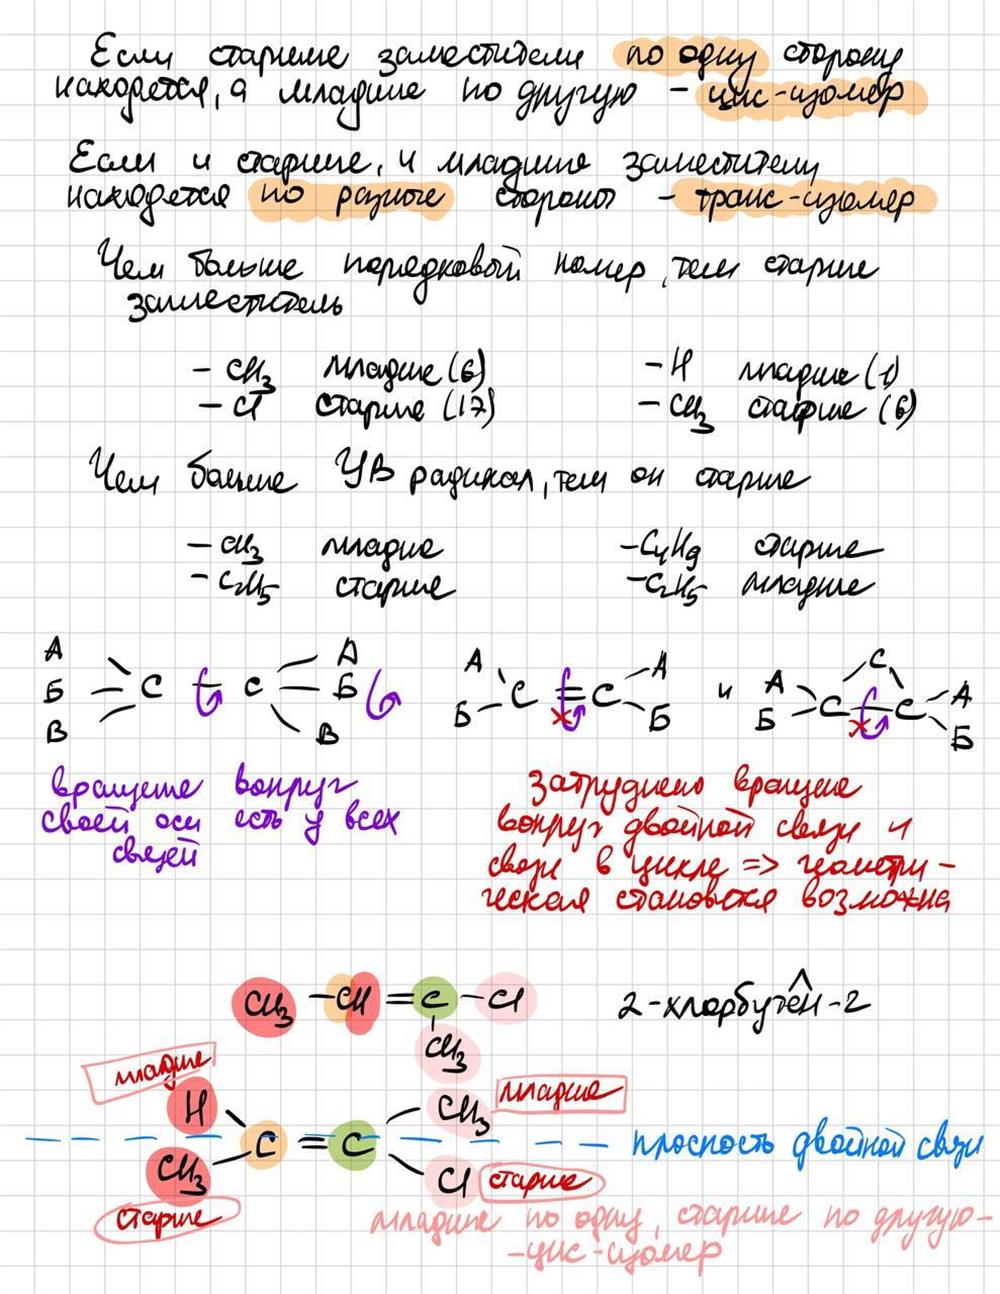 Если старшие заместители по одну сторону
находятся, а младшие по другую - цис-изомер
Если и старшие, и младшие заместители
находятся по разные стороны - транс-изомер
Чем больше порядковый номер, тем старше
заместитель
- CH3 младше (6) - H младше (1)
- Cl старше (17) - CH3 старше (6)
Чем больше УВ радикал, тем он старше
- CH3 младше -C4H9 старше
- C2H5 старше -C2H5 младше
А А А А С
Б С - С Б С = С и А С - С А
В В Б Б Б Б
вращение вокруг
своей оси есть у всех
связей
Затруднено вращение
вокруг двойной связи и
связи в цикле => геометри-
ческая становится возможна
CH3 - CH = C - Cl 2-хлорбутен-2
CH3
младше
H CH3 младше
C = C плоскость двойной связи
CH3 Cl старше
старше
младшие по одну, старшие по другую-
-цис-изомер